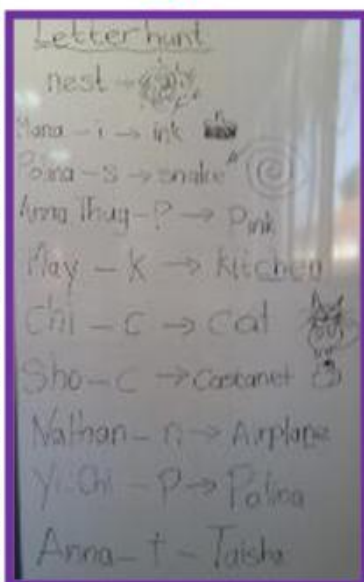 Letter hunt
nest →
Mana - i → ink
Polina - s → snake
Anna Thuy - P → Pink
May - k → kitchen
Chi - c → cat
Sho - c → Castanet
Nathan - n → Airplane
Yi-Chi - p → Polina
Anna - t - Taisha